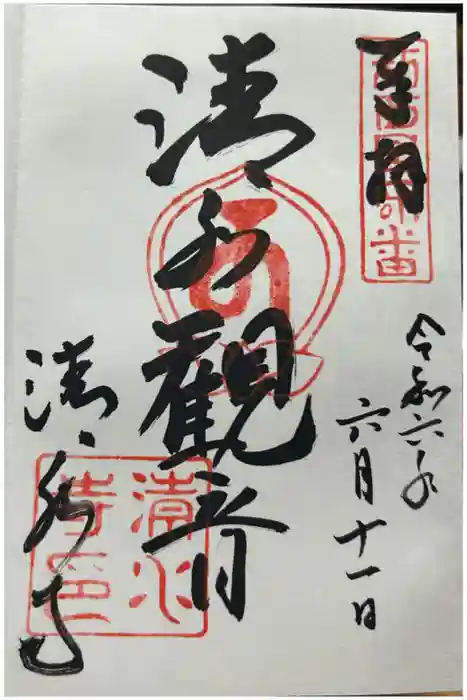 奉拝
令和六年
六月十一日
清水觀音
清水寺
清水
寺印